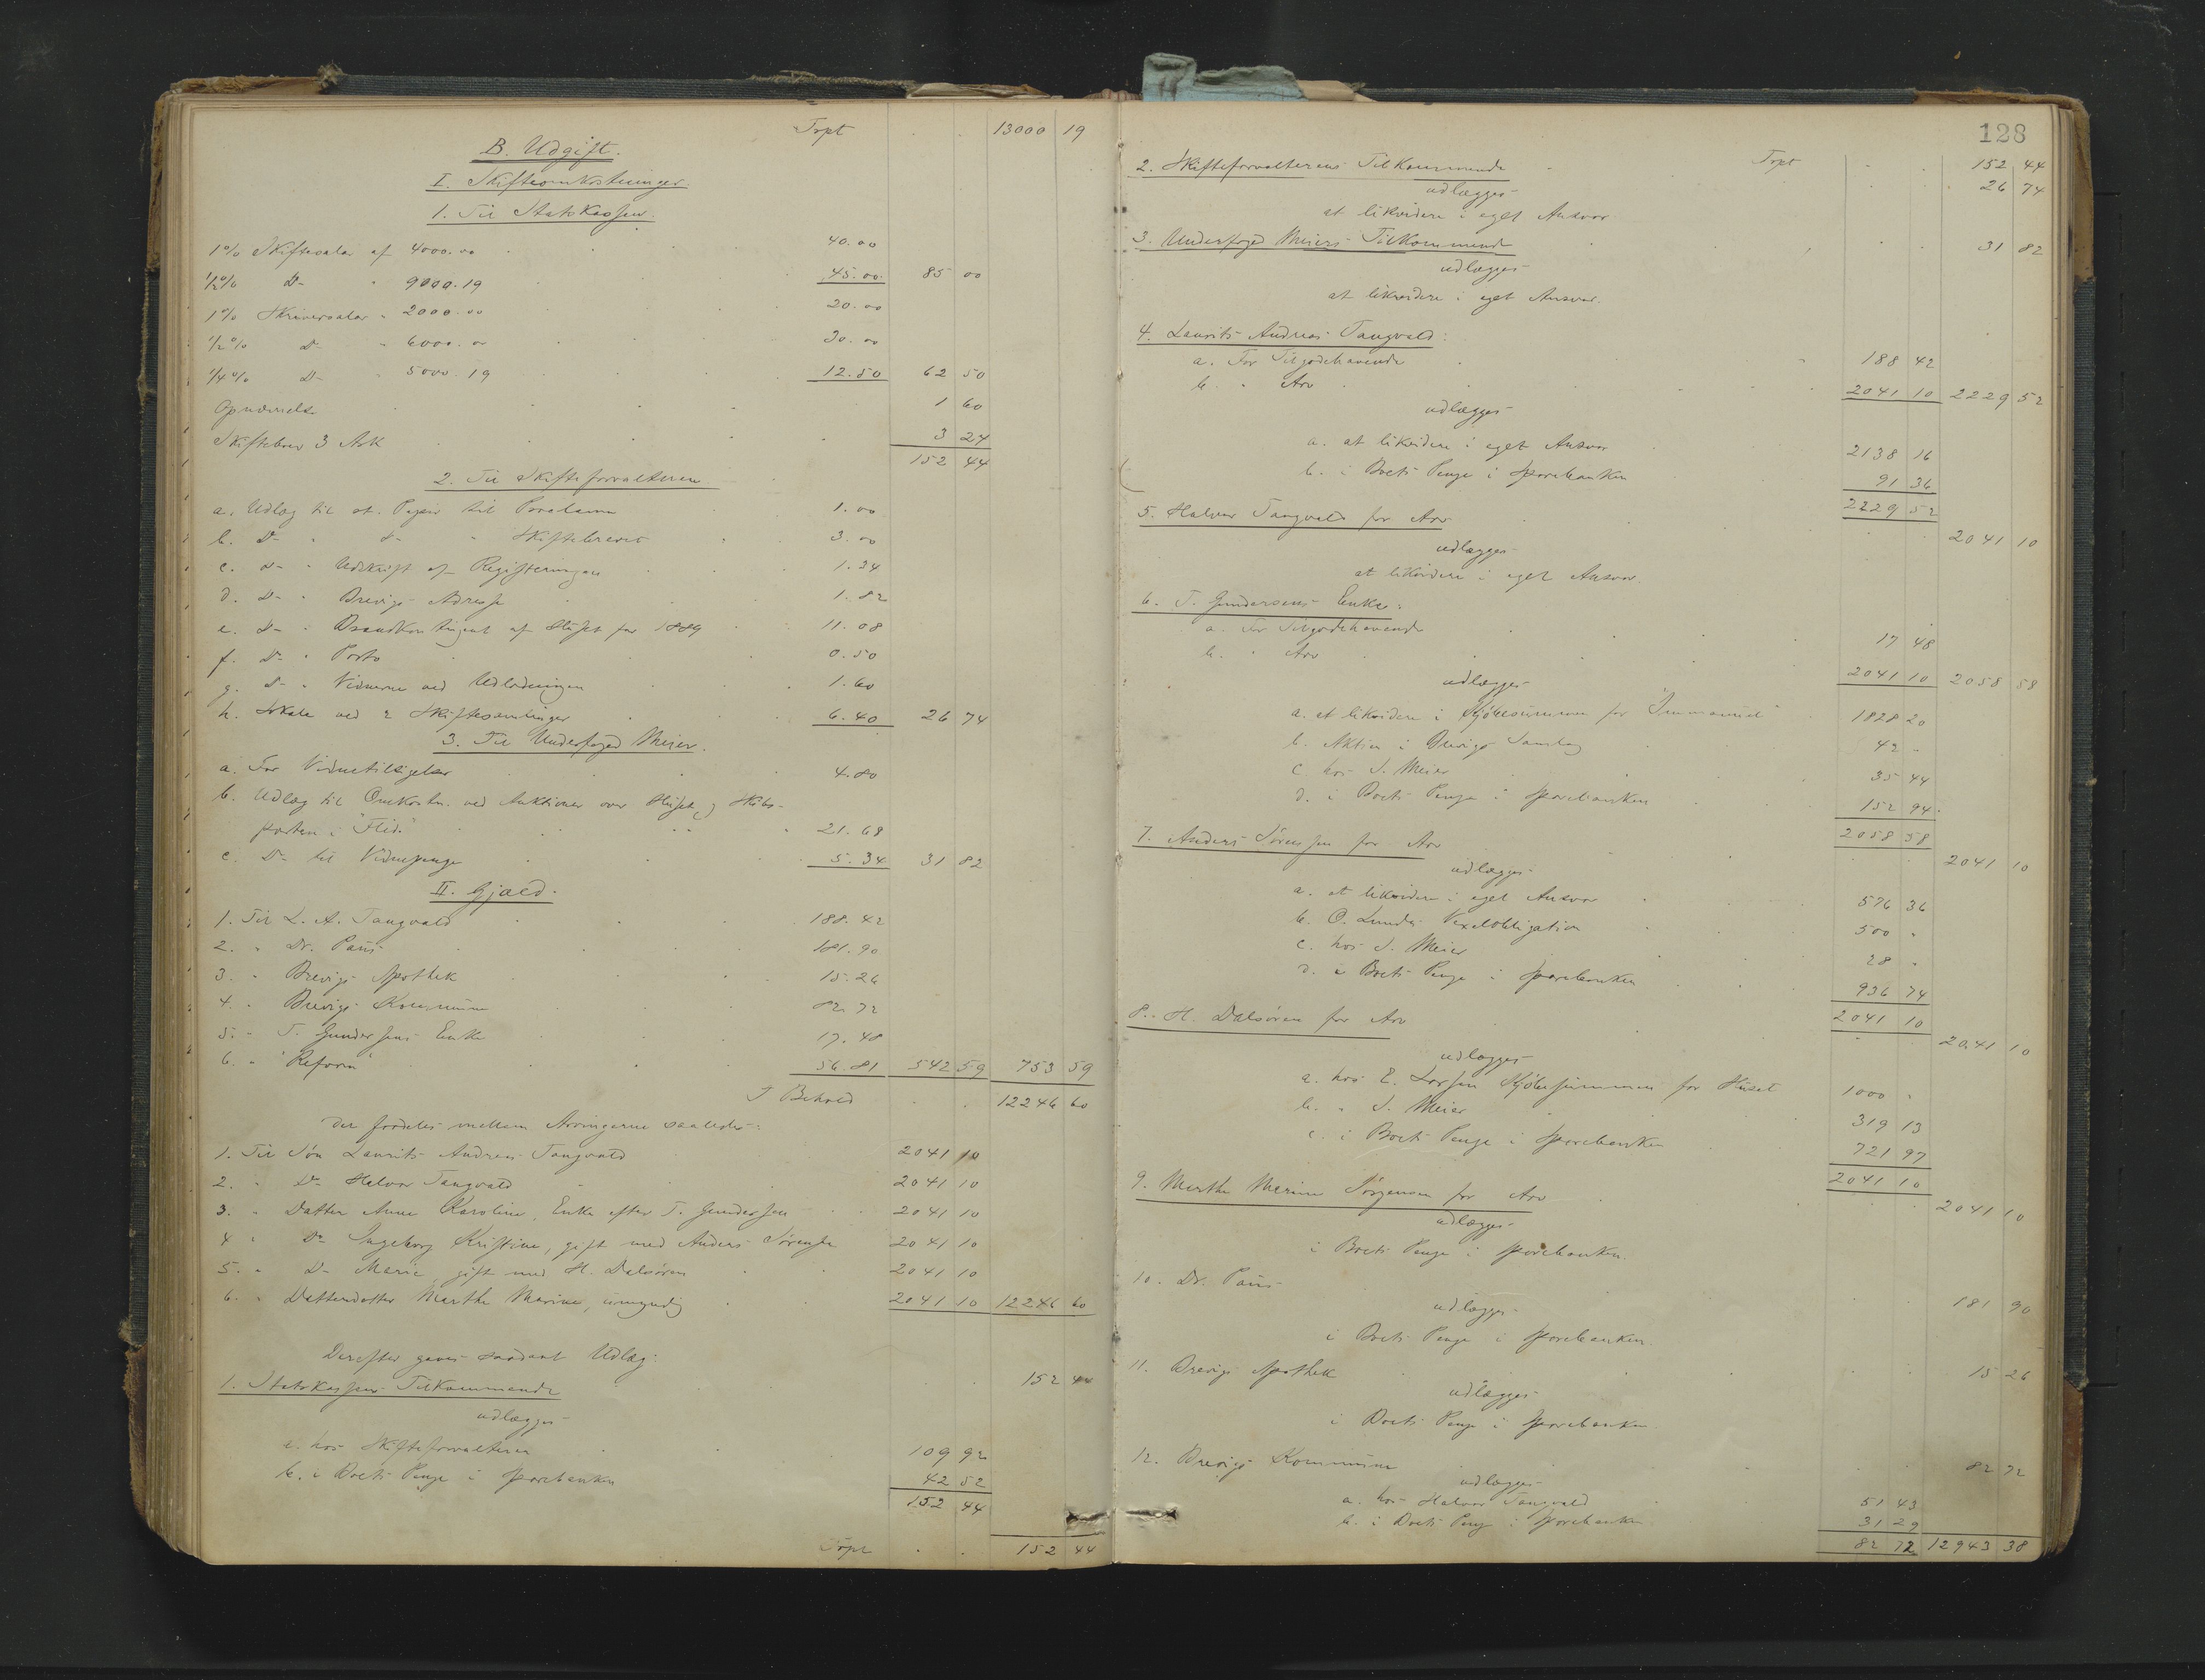 Trpt 13000 19
B. Udgift.
I. Skifteomkostninger.
1. Til Statskassen.
1% Skiftesalær af 4000.00 40.00
1/2% Do " 9000.19 45.00 85 00
1% Skriversalær " 2000.00 20.00
1/2% Do " 6000.00 30.00
1/4% Do " 5000.19 12.50 62 50
Opnævnelse 1 60
Skiftebrev 3 Ark 3 24
152 44
2. Til Skifteforvalteren
a. Udlæg til st. Papir til Proclama 1.00
b. Do " Do " Skiftebrevet 3.00
c. Do " Udskrift af Registeringen 1.34
d. Do " Brevigs Adresse 1.82
e. Do " Brandkontingent af Huset for 1889 11.08
f. Do " Porto 0.50
g. Do " Vidnerne ved Udlodningen 1.60
h. Lokale ved 2 Skiftesamlinger 6.40 26 74
3. Til Underfoged Meier.
a. For Vidnetilsigelser 4.80
b. Udlæg til Omkostn. ved Auktioner over Huset og Skibs-
parten i "Flid" 21.68
c. Do til Vidnepenge 5.34 31 82
II. Gjæld.
1. Til L. A. Tangvald 188.42
2. " Dr. Paus 181.90
3. " Brevigs Apothek 15.26
4. " Brevigs Kommune 82.72
5. " T. Gundersens Enke 17.48
6. " "Reform" 56.81 542 59 753 59
I Behold 12246 60
der fordeles mellem Arvingerne saaledes:
1. Til Søn Laurits Andreas Tangvald 2041 10
2. " Do Halvor Tangvald 2041 10
3. " Datter Anne Karoline, Enke efter T. Gundersen 2041 10
4 " Do Ingeborg Kristine, gift med Anders Sørensen 2041 10
5. " Do Marie, gift med H. Dalsøren 2041 10
6. " Datterdatter Marthe Marine, umyndig 2041 10 12246 60
Derefter gives saadant Udlæg:
1. Statskassens Tilkommende 152 44
udlægges
a. hos Skifteforvalteren 109 92
b. i Boets Penge i Sparebanken 42 52
152 44
Trpt 152 44
128
Trpt 152 44
2. Skifteforvalterens Tilkommende 26 74
udlægges
at likvidere i eget Ansvar
3. Underfoged Meiers Tilkommende 31 82
udlægges
at likvidere i eget Ansvar.
4. Laurits Andreas Tangvald:
a. For Tilgodehavende 188 42
b. " Arv 2041 10 2229 52
udlægges
a. at likvidere i eget Ansvar 2138 16
b. i Boets Penge i Sparebanken 91 36
2229 52
5. Halvor Tangvald for Arv 2041 10
udlægges
at likvidere i eget Ansvar.
6. T. Gundersens Enke:
a. For Tilgodehavende 17 48
b. " Arv 2041 10 2058 58
udlægges
a. at likvidere i Kjøbesummen for "Immanuel" 1828 20
b. Aktier i Brevigs Samlag 42 "
c. hos J. Meier 35 44
d. i Boets Penge i Sparebanken 152 94
2058 58
7. Anders Sørensen for Arv 2041 10
udlægges
a. at likvidere i eget Ansvar 576 36
b. O. Lunds Vexelobligation 500 "
c. hos J. Meier 28 "
d. i Boets Penge i Sparebanken 936 74
2041 10
8. H. Dalsøren for Arv 2041 10
udlægges
a. hos E. Larsen Kjøbesummen for Huset 1000 "
b. " J. Meier 319 13
c. i Boets Penge i Sparebanken 721 97
2041 10
9. Marthe Marine Jørgensen for Arv 2041 10
udlægges
i Boets Penge i Sparebanken.
10. Dr. Paus 181 90
udlægges
i Boets Penge i Sparebanken.
11. Brevigs Apothek 15 26
udlægges
i Boets Penge i Sparebanken
12. Brevigs Kommune 82 72
udlægges
a. hos Halvor Tangvald 51 43
b. i Boets Penge i Sparebanken 31 29
82 72 12943 38